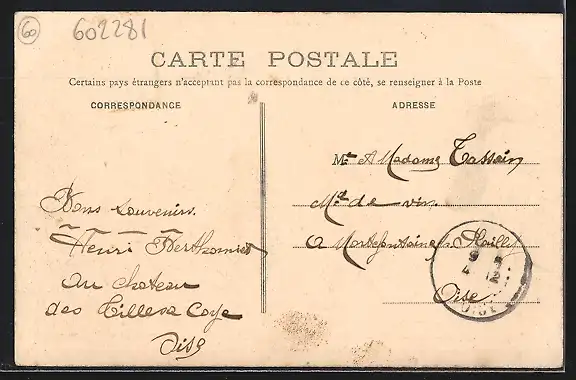 60
602281
CARTE POSTALE
Certains pays étrangers n'acceptant pas la correspondance de ce côté, se renseigner à la Poste
CORRESPONDANCE
ADRESSE
Bons souvenirs.
Henri
Au chateau
des Tilles à Coye
Oise
Mr & Madame Tassein
Md de vin
a Mortefontaine Plailly
Oise